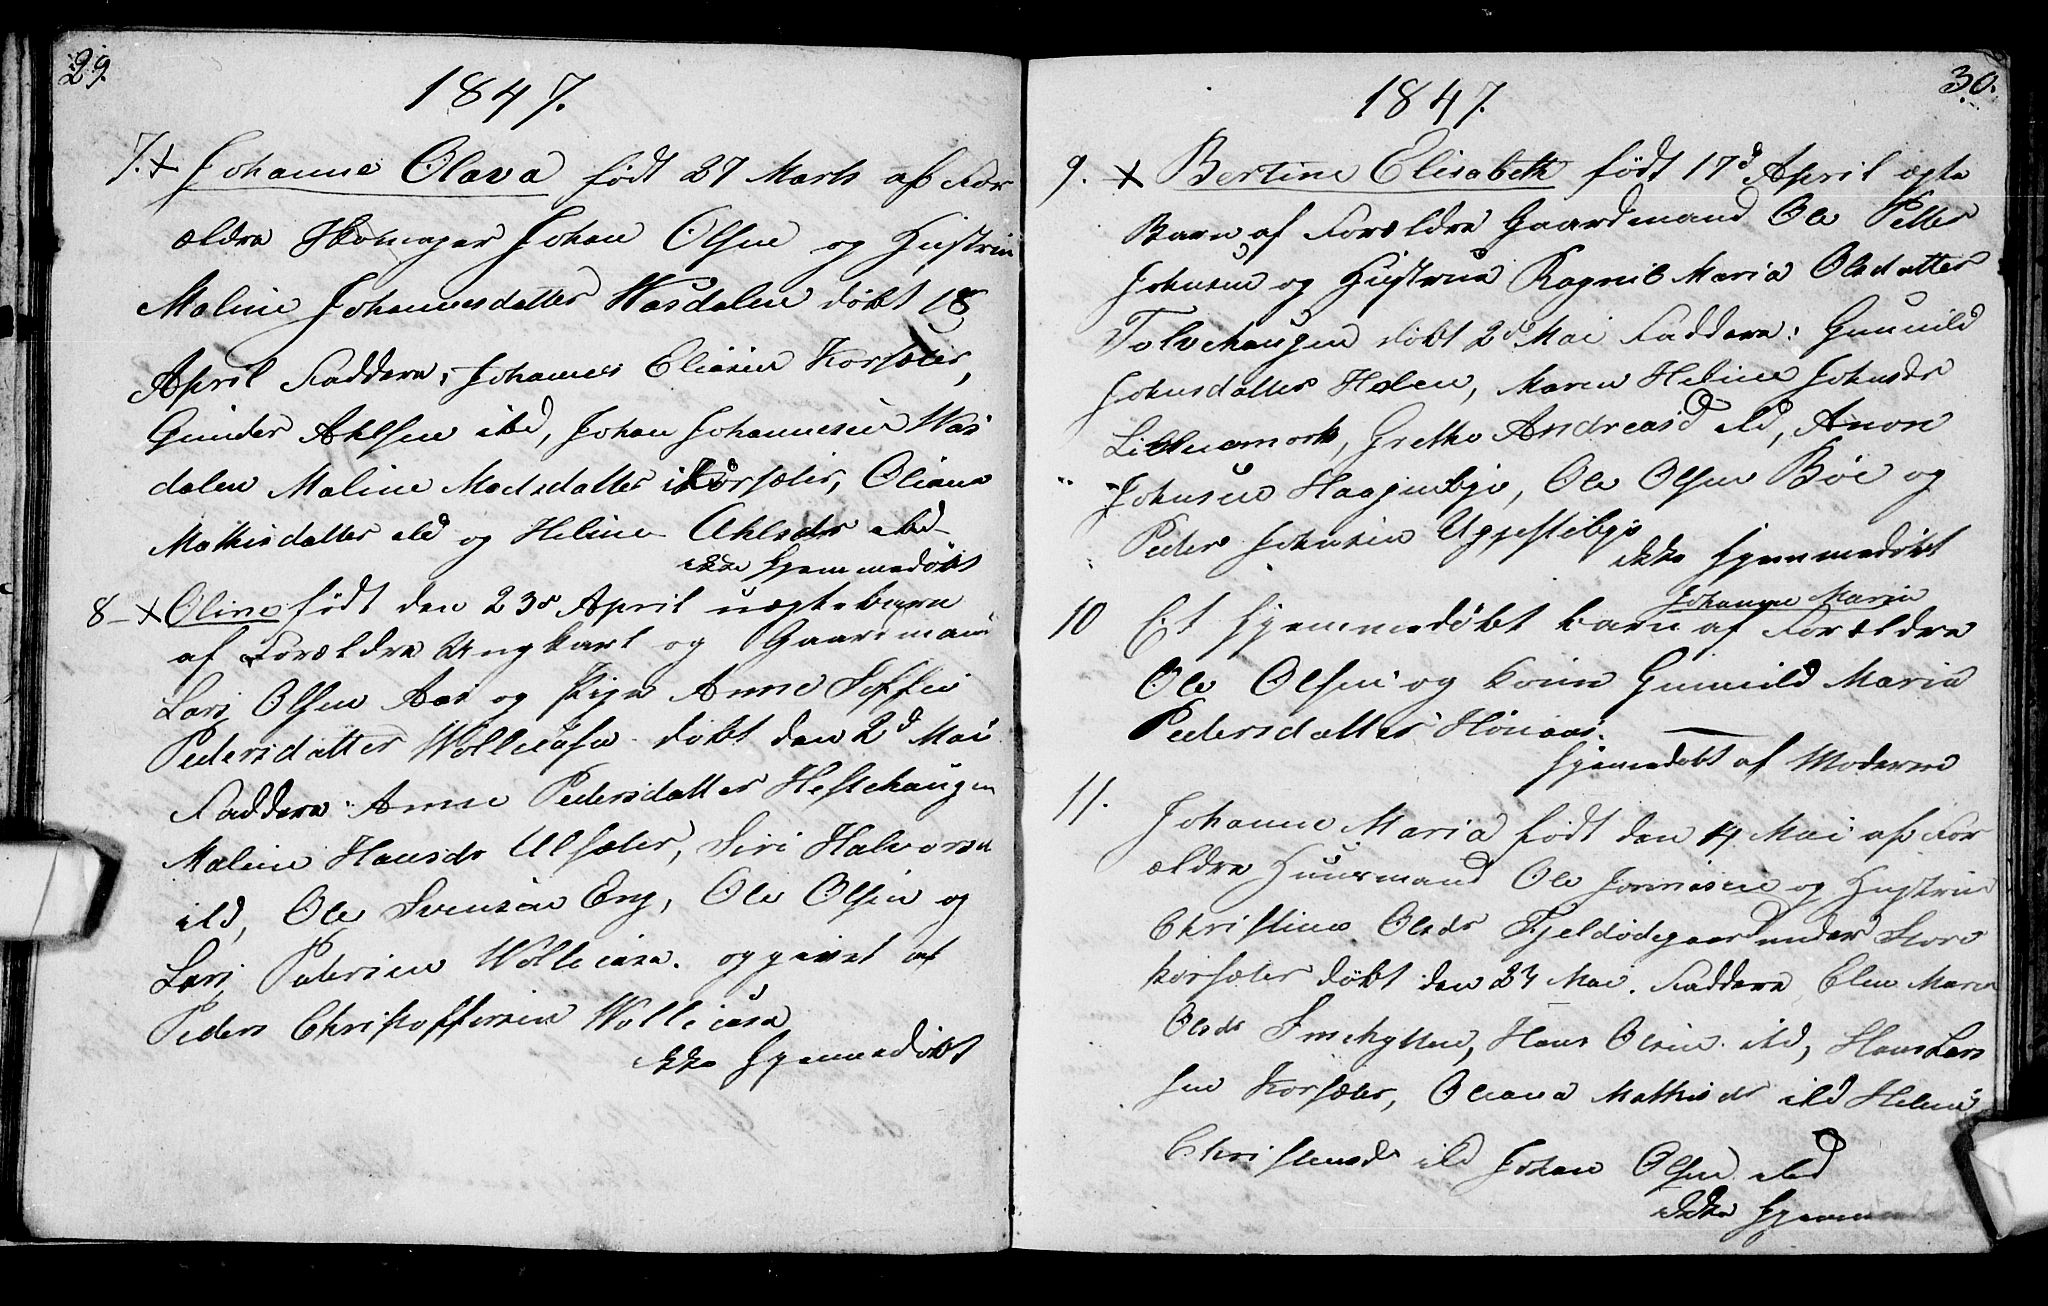 29.
1847.
7. + Johanne Olava født 27 Marts af For
ældre Skomager Johan Olsen og Hustrue
Maline Johannesdatter Wasdalen døbt 18
April Faddere, Johannes Eliasen Korsæter,
Gunder Ahlsen ibd, Johan Johannesen Was
dalen Maline Madsdatter Korsæter, Oliana
Mathisdatter ibd og Helene Ahlsdr ibd
ikke Hjemmedøbt
8 – + Oline født den 23de April uægte barn
af Forældre Ungkarl og Gaardmand
Lars Olsen Aas og Pige Anne Soffie
Pedersdatter Wolleiasa døbt den 2d Mai
Faddere: Anne Pedersdatter Heftehaugen
Maline Hansdr Ulsæter, Siri Halvorsd
ibd, Ole Svensen Eng, Ole Olsen og
Lars Petersen Wolleiasa. opgivet af
Peders Christoffersen Wolleiasa
ikke Hjemmedøbt
30.
1847.
9. + Bertine Elisabeth født 17d April ægte
Barn af Forældre Gaardmand Ole Petter
Johnsen og Hustrue Ragnil Maria Olsdatter
Tolvehaugen døbt 2d Mai Faddere: Gunnild
Johnsdatter Holen, Maren Helene Johnsdr
Lillemork, Grethe Andreasd ibd, Anon
Johnsen Haagenbye, Ole Olsen Böe og
Peder Johnsen Uggestebye
ikke Hjemmedøbt
Johanne Maria
10 Et Hjemmedøbt barn af Forældre
Ole Olsen og kone Gunnild Maria
Pedersdatter Hönaas.
Hjemedøbt af Moderen
11. Johanne Maria født den 14 Mai af For
ældre Huusmand Ole Jonnesen og Hustrue
Christine Olsdr Fjeldødegaard under Store
korsæter døbt den 24 Mai. Faddere Elen Maria
Olsdr Smehytten, Hans Olsen ibd, Hans Lars
sen Korsæter, Oliana Mathisdr ibd Helene
Christensdr ibd Johan Olsen ibd
ikke Hjemme